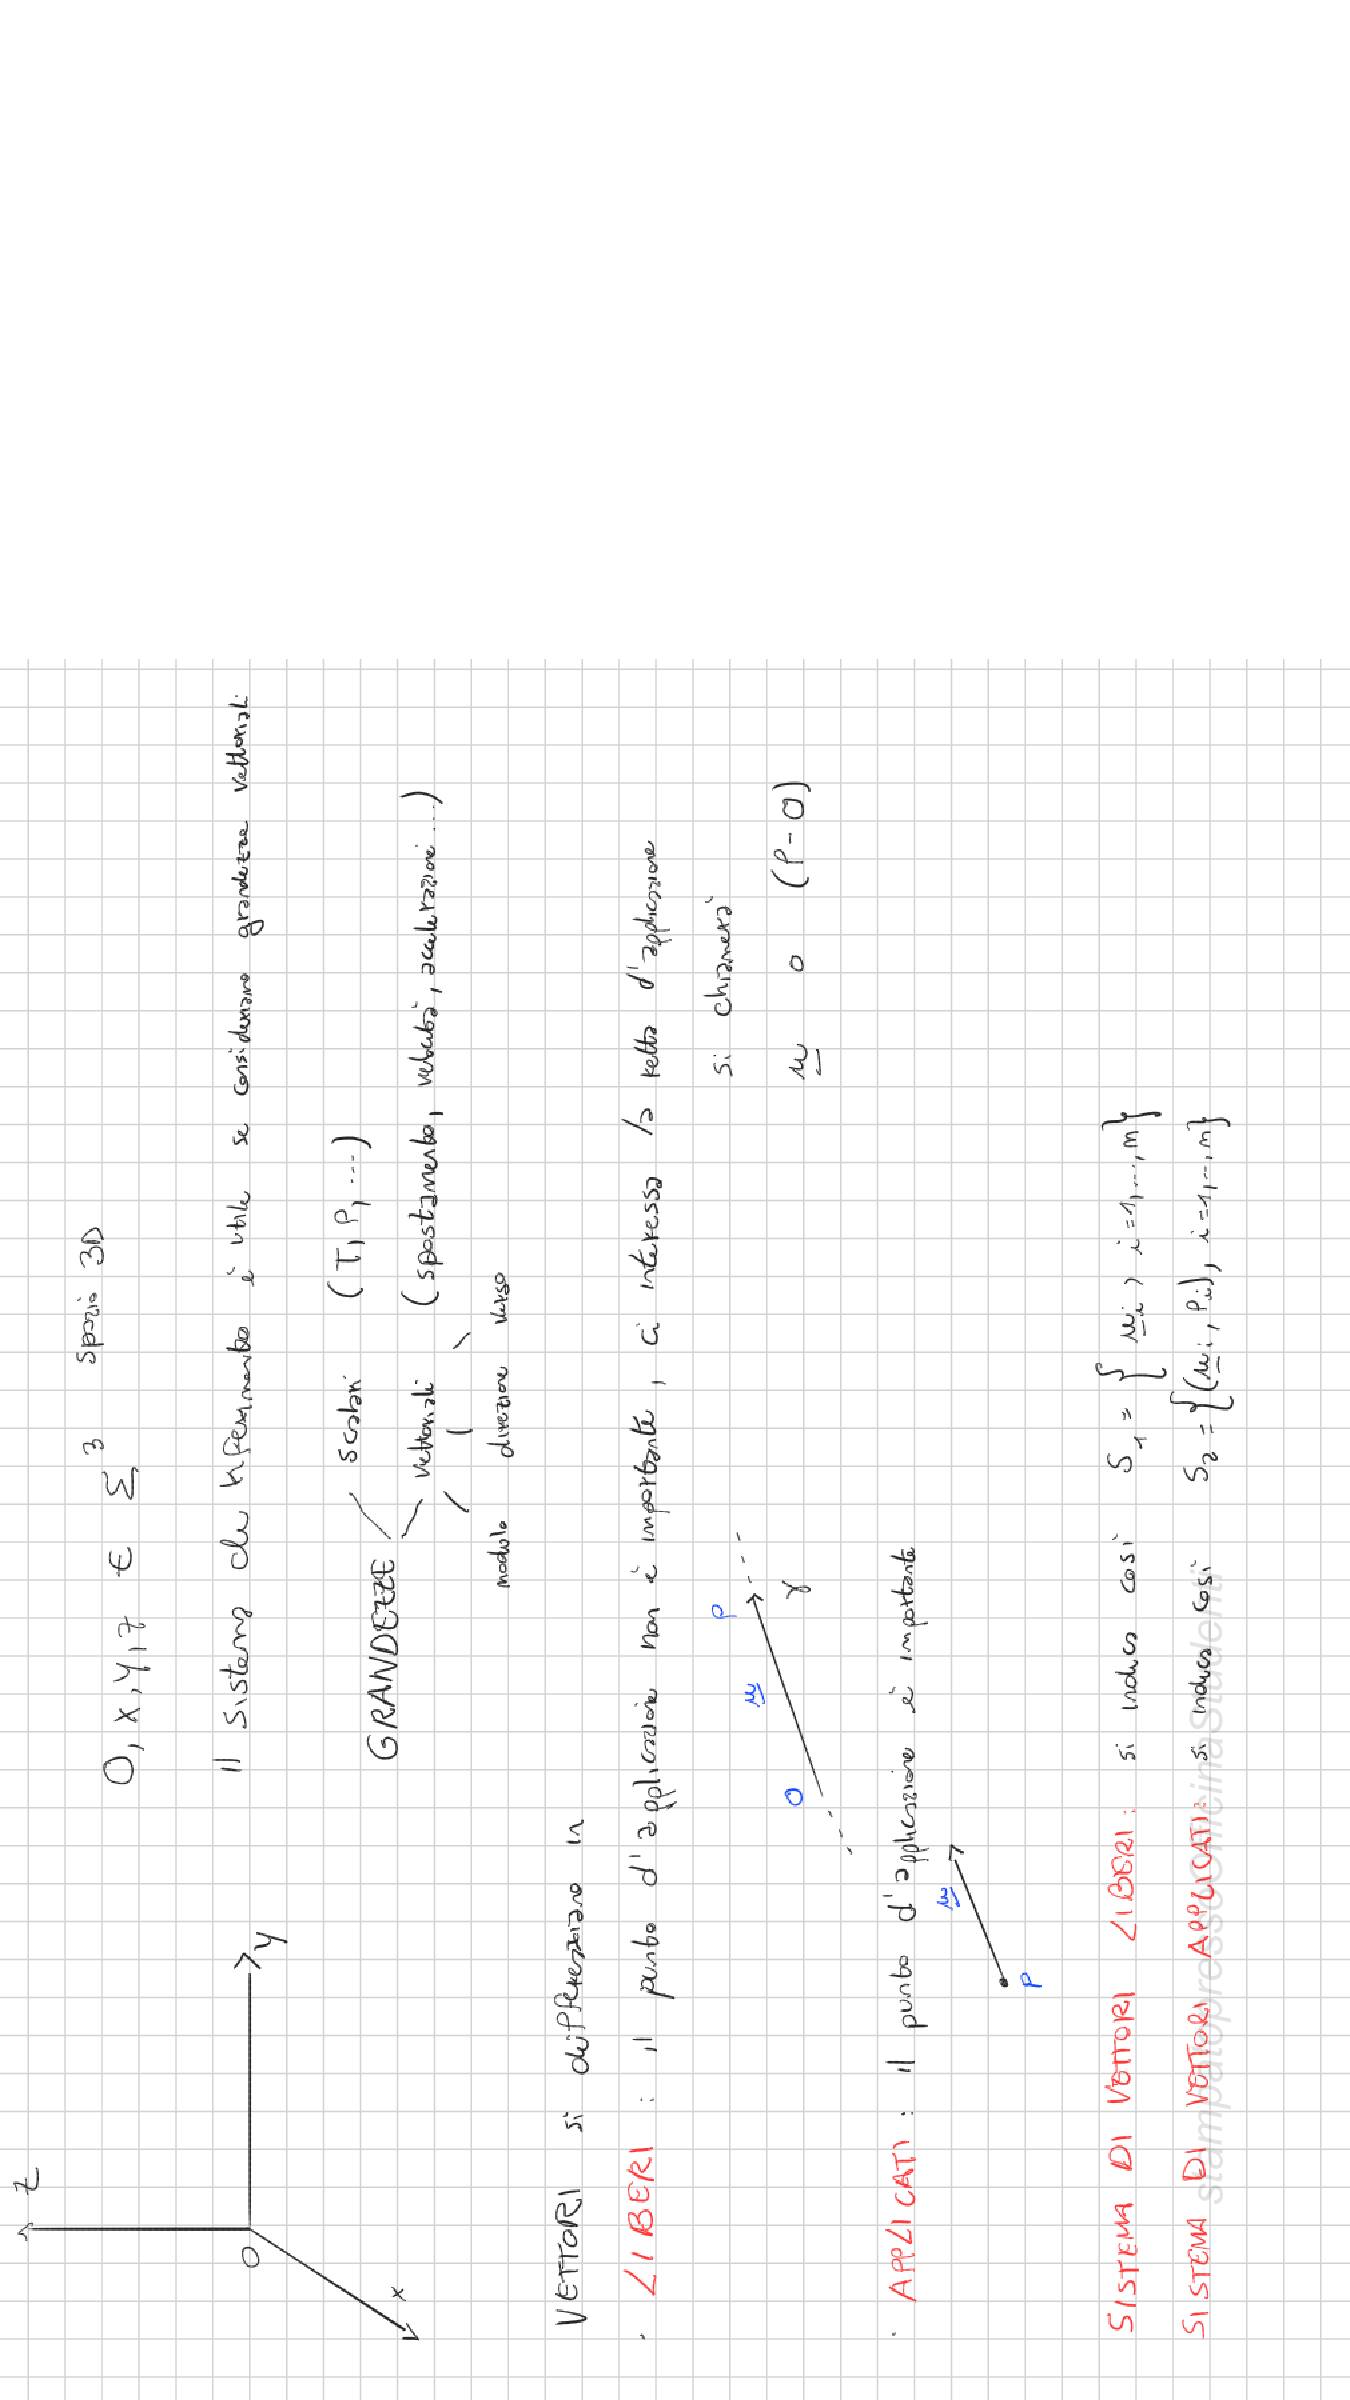 z
O
y
x
O, x, y, z ∈ Σ³ spazio 3D
Il sistema di riferimento è utile se consideriamo grandezze vettoriali
GRANDEZZE
scalari (T, P, ...)
vettoriali (spostamento, velocità, accelerazioni...)
modulo direzione verso
VETTORI si differenziano in
· LIBERI : il punto d'applicazione non è importante, ci interessa la retta d'applicazione
O u P
r
si chiamerà
u o (P-O)
· APPLICATI : il punto d'applicazione è importante
P u
SISTEMA DI VETTORI LIBERI: si indica così S₁ = { uᵢ, i=1,...,n}
SISTEMA DI VETTORI APPLICATI: si indica così S₂ = {(uᵢ, Pᵢ), i=1,...,n}
stampatopressoOfficinaStudenti